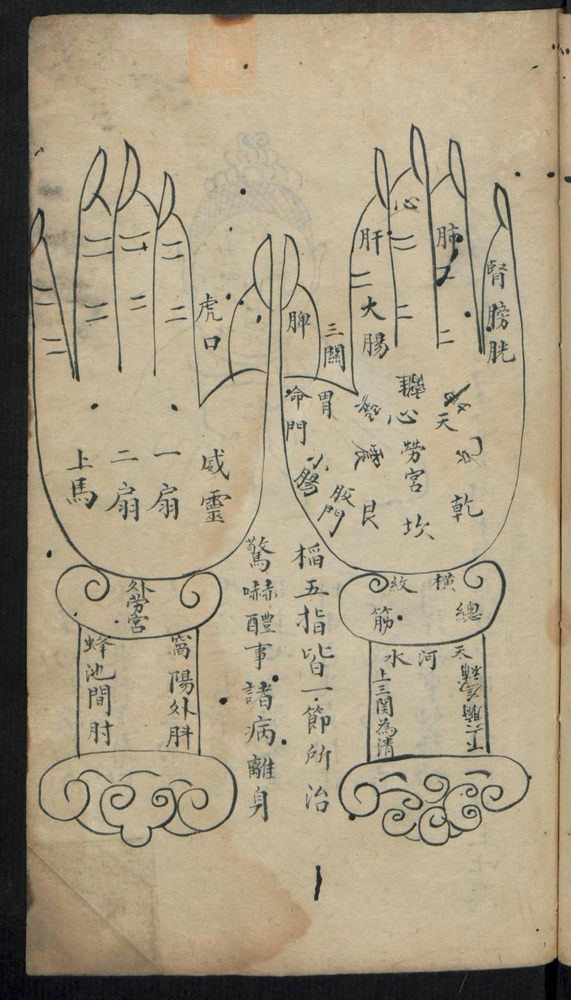 腎膀胱
肺
心
肝
大腸
脾
三關
胃
命門
小腸
心
勞宮
坎
艮
震
乾
天
橫
紋
總
筋
天
河
水
上三関為清
稲五指皆一節所治
驚嚇醴事諸病離身
虎口
威靈
一扇
二扇
上馬
外勞宮
陽外肘
蜂池間肘